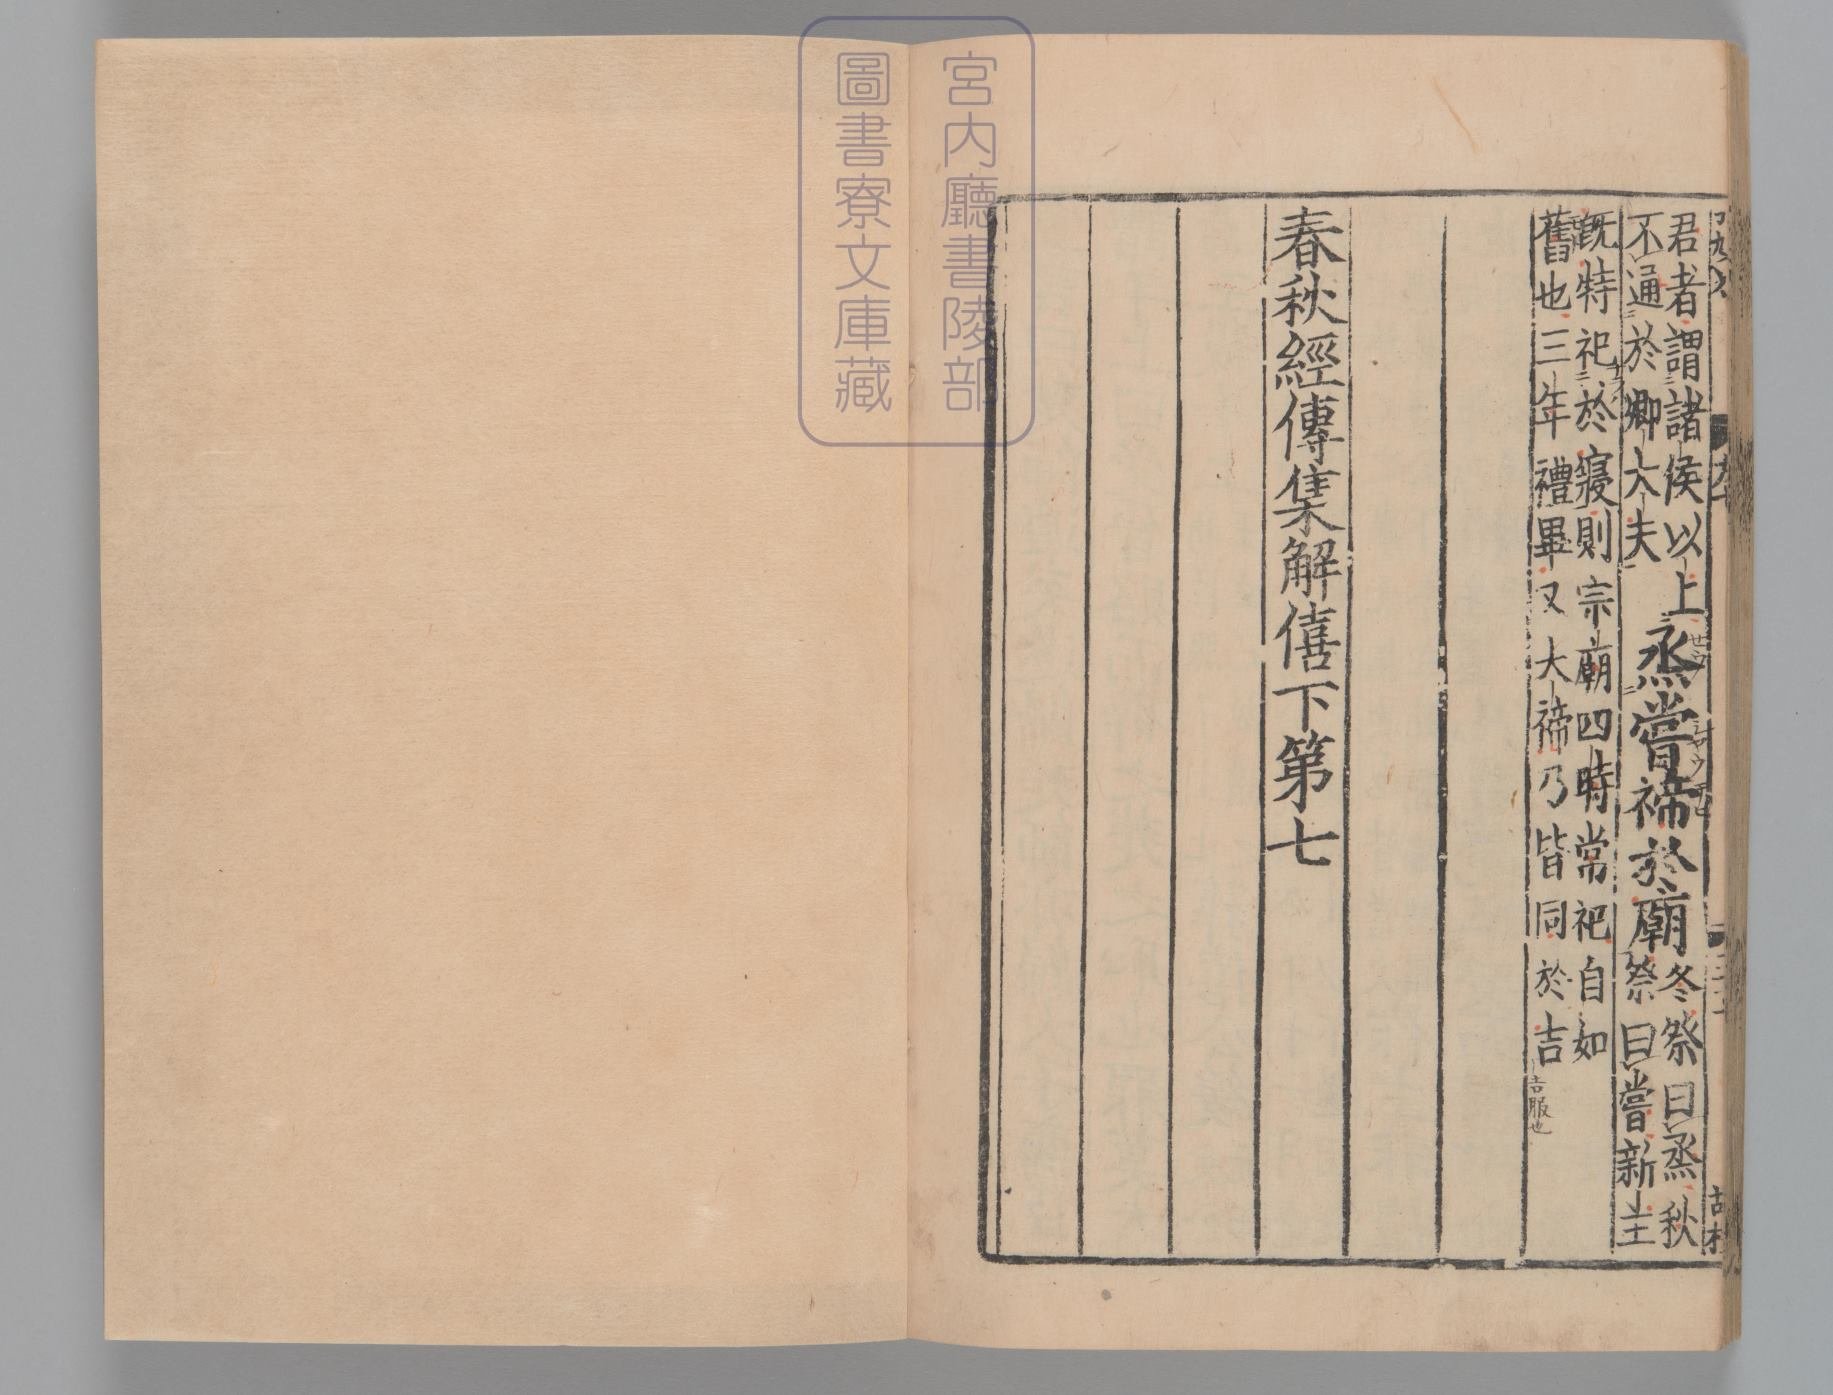 君者謂諸侯以上
不通於卿大夫
烝嘗禘於廟
冬祭曰烝秋
祭曰嘗新主
既特祀於寢則宗廟四時常祀自如
舊也三年禮畢又大禘乃皆同於吉
吉服也
春秋經傳集解僖下第七
宮内廳書陵部
圖書寮文庫藏